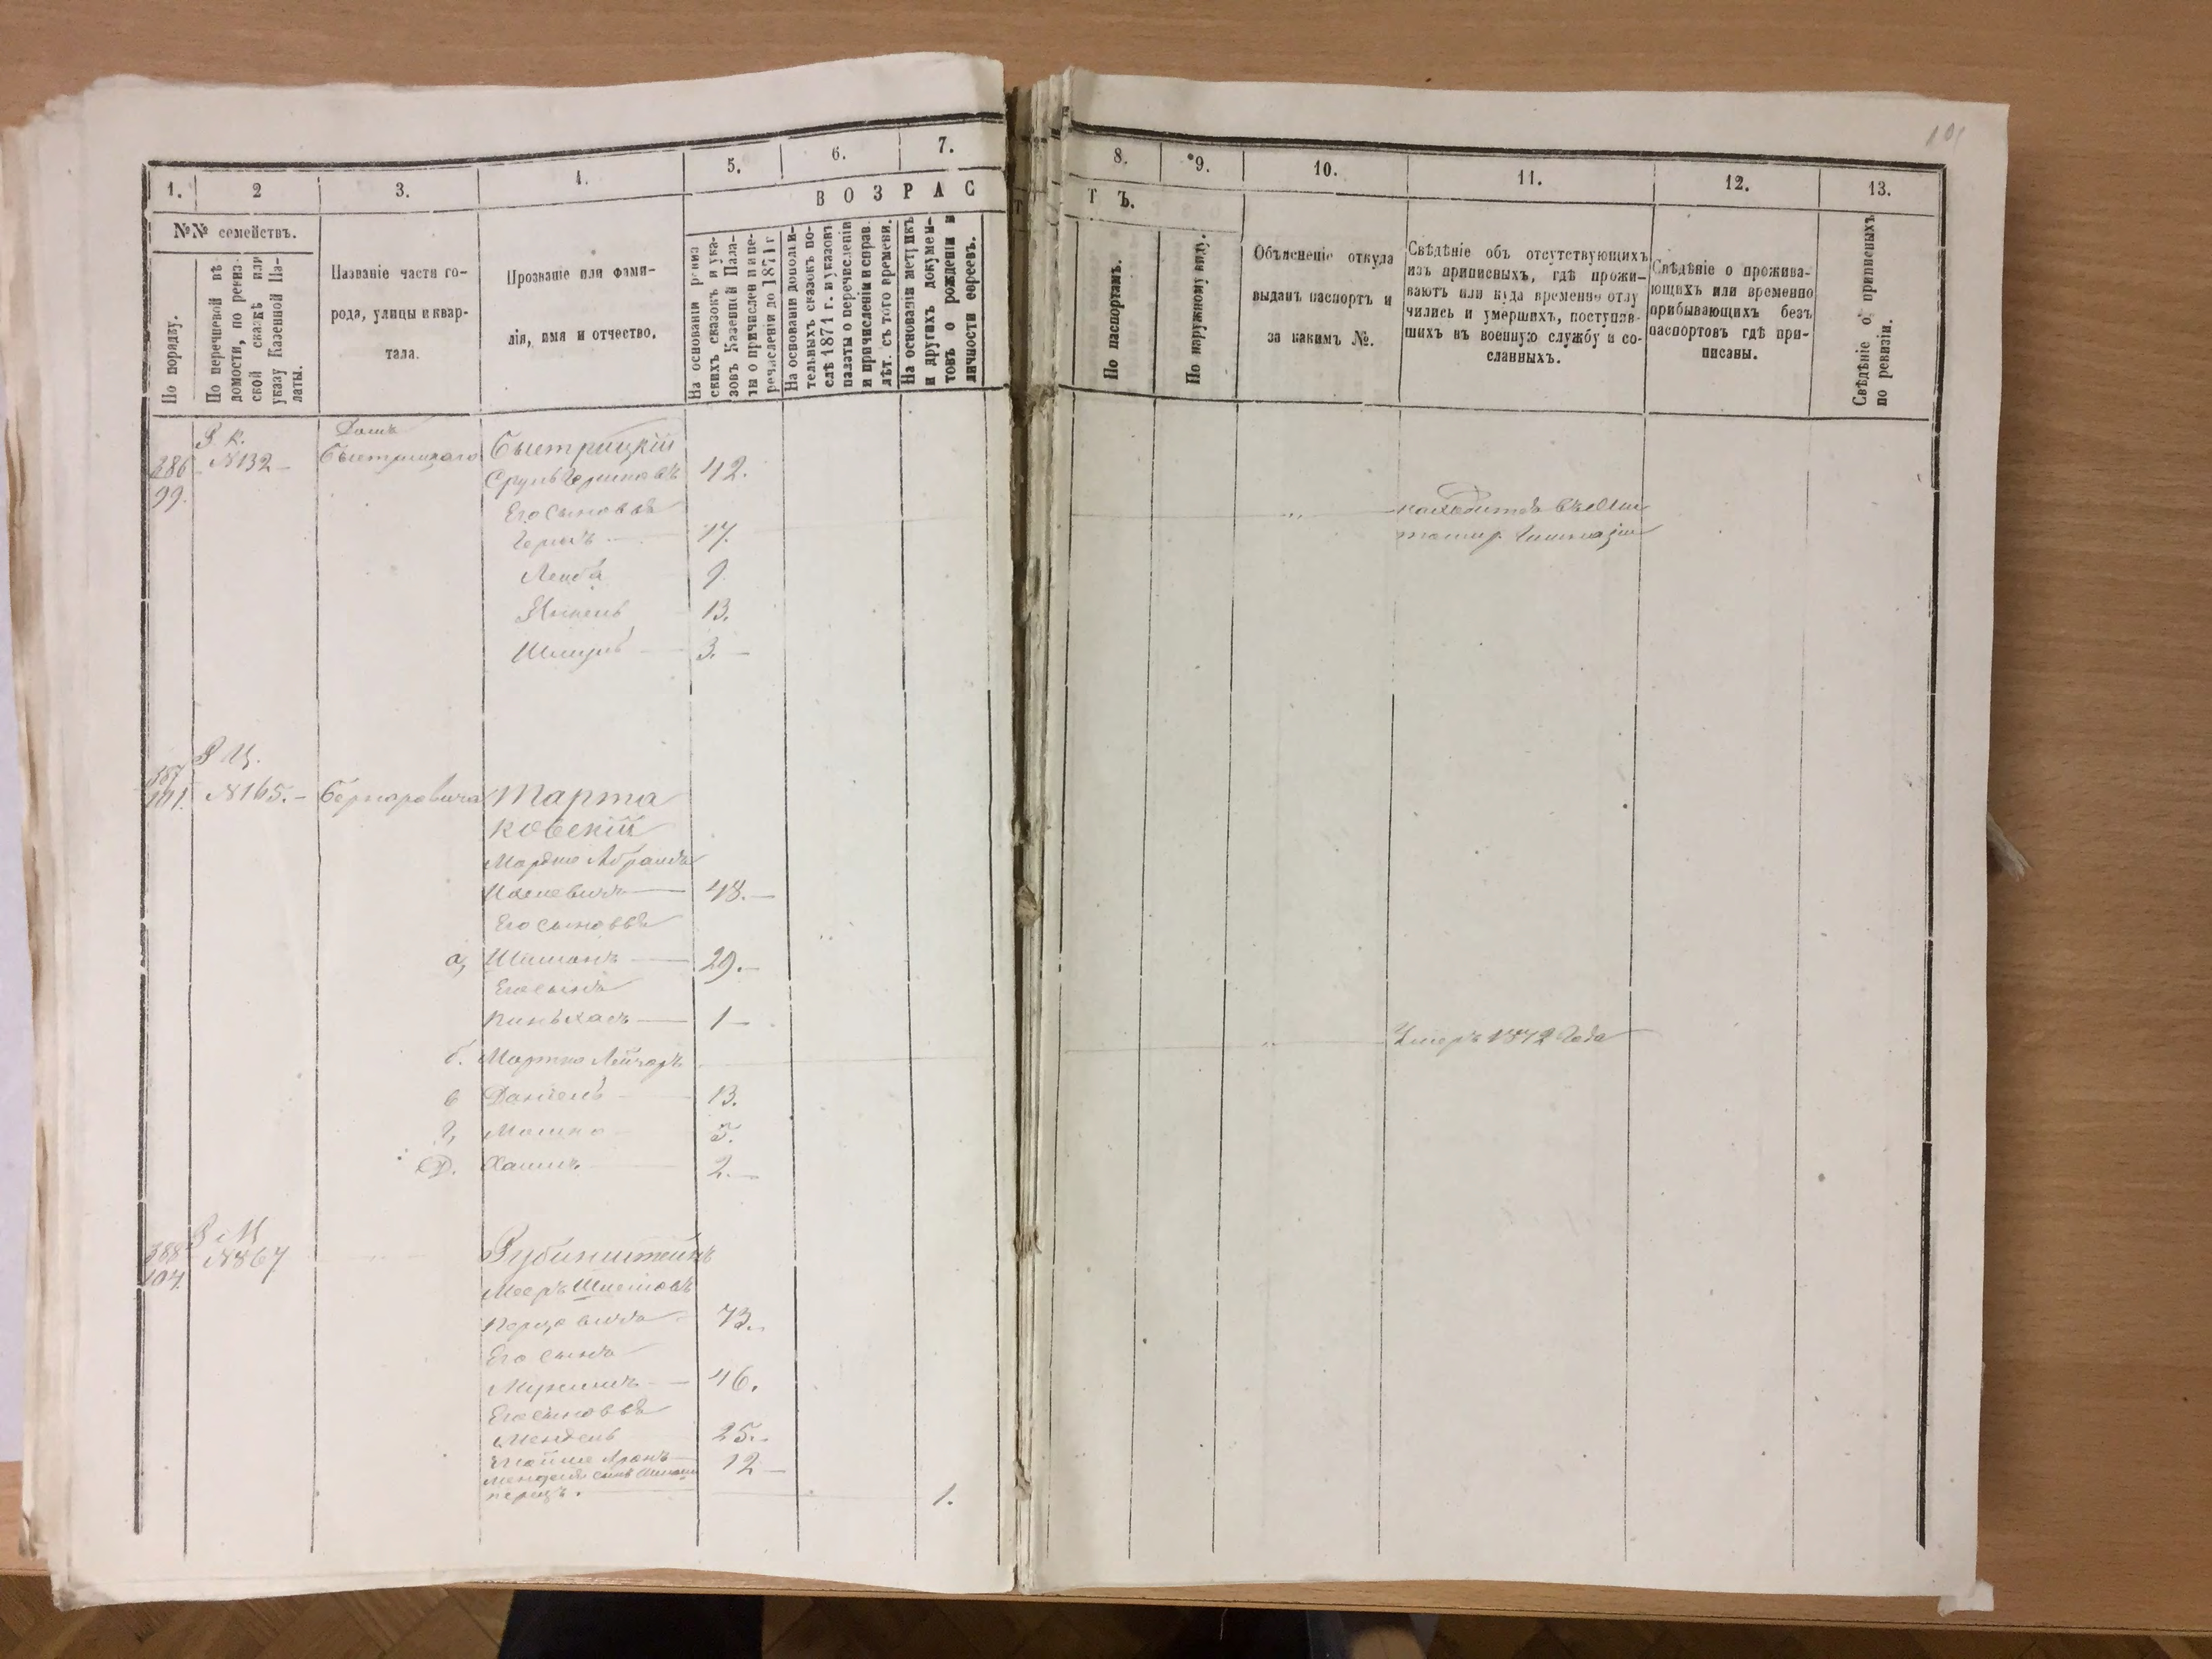 101
1.
2
3.
4.
5.
6.
7.
ВОЗРАС
№№ семействъ.
По порядку.
По перечневой вѣ-
домости, по ревиз-
ской сказкѣ или
указу Казенной Па-
латы.
Названіе части го-
рода, улицы и квар-
тала.
Прозваніе или фами-
лія, имя и отчество.
На основаніи ревиз
скихъ сказокъ и ука-
зовъ Казенной Пала-
ты о причислен и и пе-
речисленіи до 1871 г
На основаніи дополни-
тельныхъ сказокъ по-
слѣ 1871 г. и указовъ
палаты о перечисленіи
и причисленіи и справ.
лѣт. съ того времени.
На основаніи метрикъ
и другихъ докумен-
товъ о рожденіи и
личности евреевъ.
8.
9.
10.
11.
12.
13.
ТЪ.
По паспортамъ.
По наружному виду.
Объясненіе откуда
выданъ паспортъ и
за какимъ №.
Свѣдѣніе объ отсутствующихъ
изъ приписныхъ, гдѣ прожи-
ваютъ или куда временно отлу
чились и умершихъ, поступив-
шихъ въ военную службу и со-
сланныхъ.
Свѣдѣніе о прожива-
ющихъ или временно
прибывающихъ безъ
паспортовъ гдѣ при-
писаны.
Свѣдѣніе о приписныхъ
по ревизіи.
386
99.
Р К.
№132
Домъ
Быстрицкаго
Быстрицкій
Сруль Гершковъ 42.
Его Сыновья
Гершъ 17. находится въ
Лейба 9
Янкель 13.
Шлиумъ 3.
387
101.
Р Ц.
№165.
Тарта
ковскій
Мордко Абрамъ
48.
Его сыновья
а, Шимонъ 29.
Его сынъ
Пинькасъ 1
б. Мортко Лейзоръ Умеръ 1872 Года
в Даніель 13.
г, Мошко 5.
Д. Хаимъ 2.
388
104.
Р М
№867
Рубинштейнъ
Мееръ Шлемовъ
Перцовичъ 73.
Его сынъ
46.
Его сыновья
Мендель 25.
Аронъ 12
Менделя сынъ
перецъ. 1.